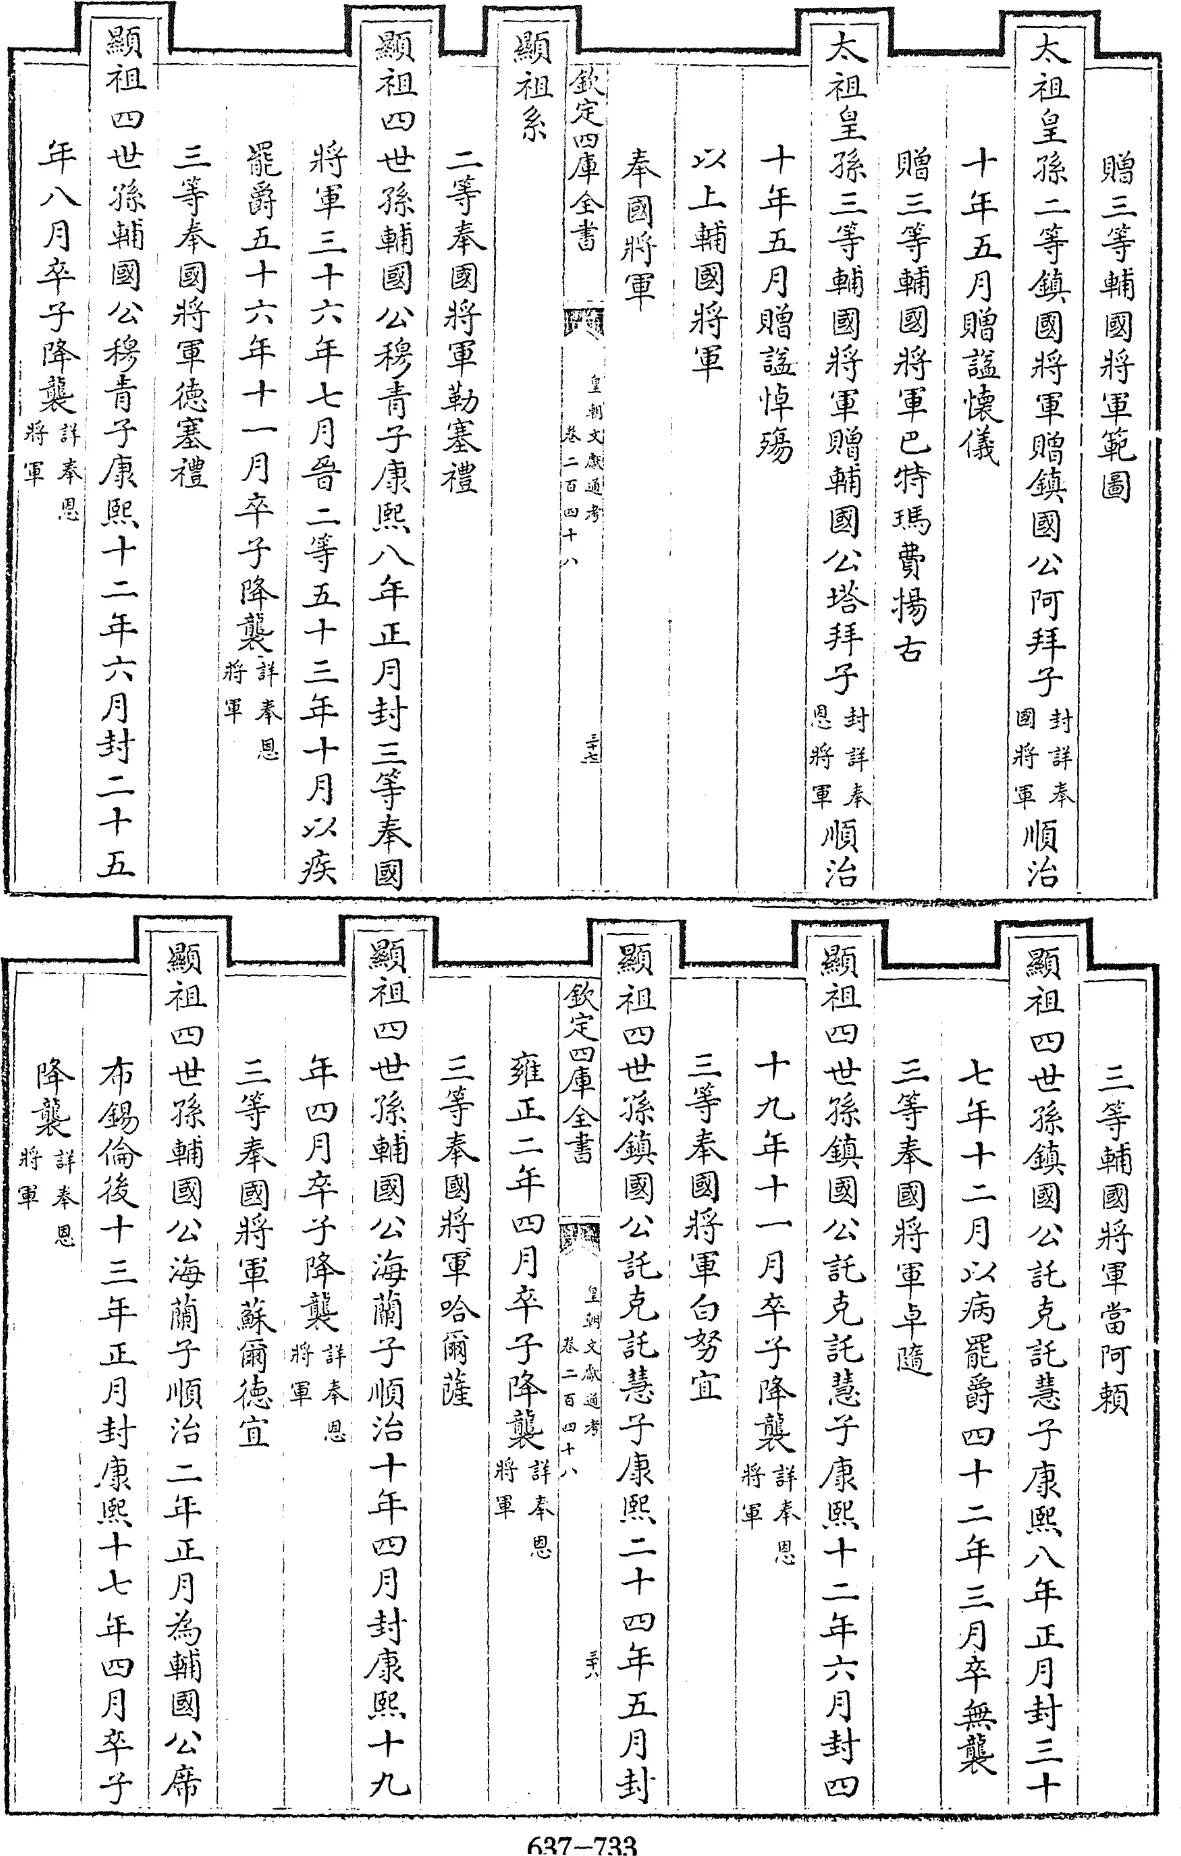 贈三等輔國將軍範圖
太祖皇孫二等鎮國將軍贈鎮國公阿拜子封詳奉國將軍順治
十年五月贈諡懷儀
贈三等輔國將軍巴特瑪費揚古
太祖皇孫三等輔國將軍贈輔國公塔拜子封詳奉恩將軍順治
十年五月贈諡悼殤
以上輔國將軍
奉國將軍
欽定四庫全書
皇朝文獻通考
卷二百四十八
三十七
顯祖系
二等奉國將軍勒塞禮
顯祖四世孫輔國公穆青子康熙八年正月封三等奉國
將軍三十六年七月晉二等五十三年十月以疾
罷爵五十六年十一月卒子降襲詳奉恩將軍
三等奉國將軍德塞禮
顯祖四世孫輔國公穆青子康熙十二年六月封二十五
年八月卒子降襲詳奉恩將軍
三等輔國將軍當阿賴
顯祖四世孫鎮國公託克託慧子康熙八年正月封三十
七年十二月以病罷爵四十二年三月卒無襲
三等奉國將軍卓隨
顯祖四世孫鎮國公託克託慧子康熙十二年六月封四
十九年十一月卒子降襲詳奉恩將軍
三等奉國將軍白努宜
顯祖四世孫鎮國公託克託慧子康熙二十四年五月封
欽定四庫全書
皇朝文獻通考
卷二百四十八
三十八
雍正二年四月卒子降襲詳奉恩將軍
三等奉國將軍哈爾薩
顯祖四世孫輔國公海蘭子順治十年四月封康熙十九
年四月卒子降襲詳奉恩將軍
三等奉國將軍蘇爾德宜
顯祖四世孫輔國公海蘭子順治二年正月為輔國公席
布錫倫後十三年正月封康熙十七年四月卒子
降襲詳奉恩將軍
637-733